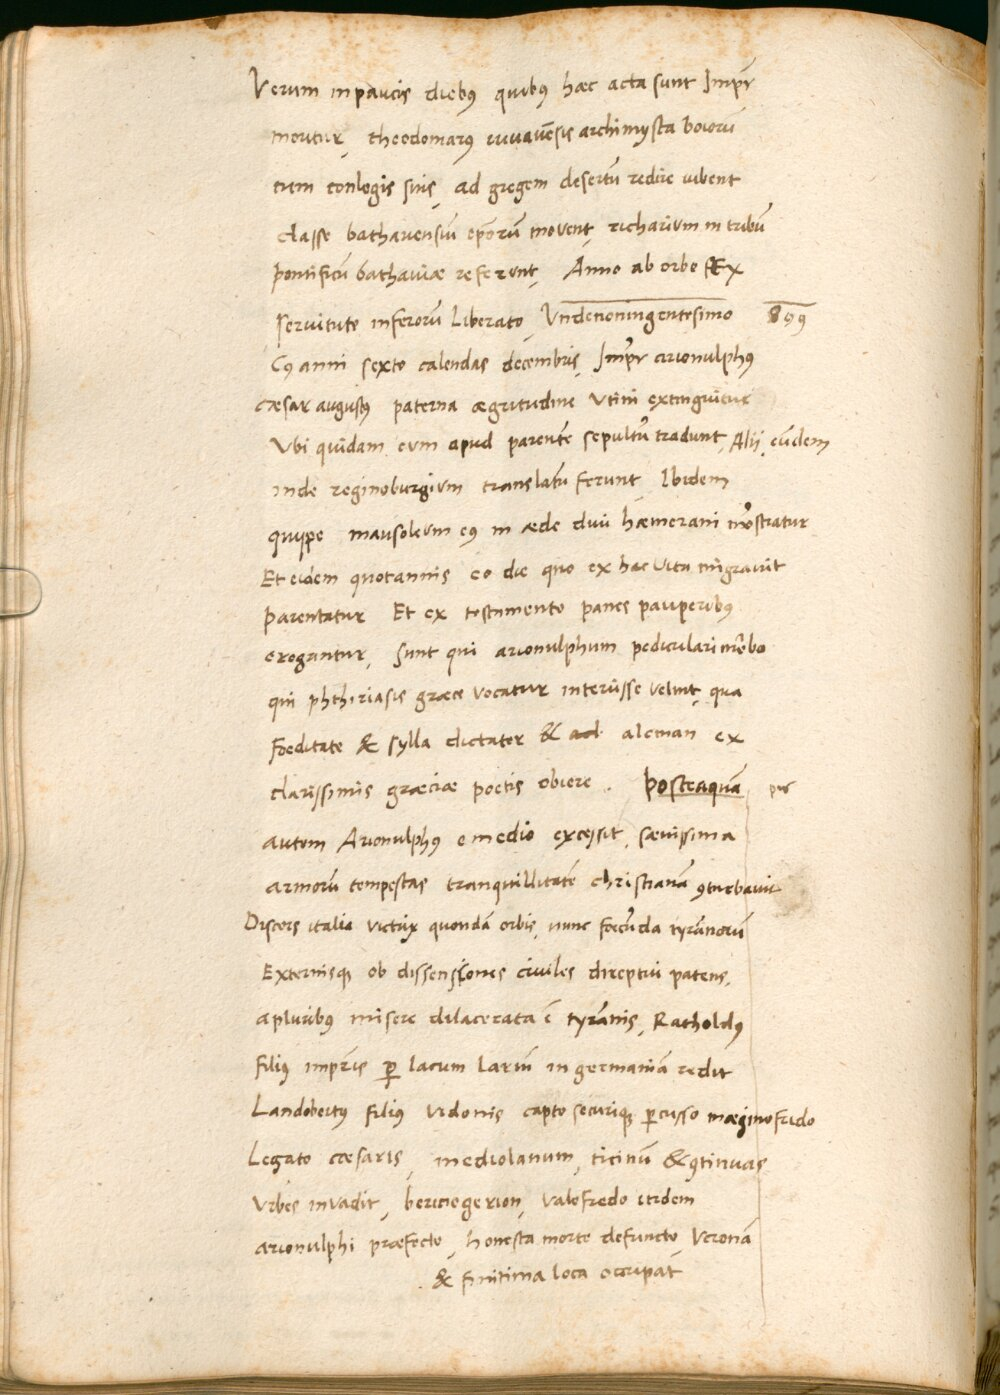 Verum in paucis diebꝰ quibꝰ hæc acta sunt Imp̄r
moritur, theodomarꝰ iuuauēsis archimysta boiorū
cum conlegis suis, ad gregem desertū redire iubent
classe bathauensiū ep̄orū mouent, richarium in tribū
pontificū bathauiæ referunt, Anno ab orbe ex
seruitute inferorū Liberato, Vndenoningentesimo 899
Cꝰ anni sexto calendas decembris, Imp̄r arionulphꝰ
cæsar augustꝰ paterna ægritudine Vtini extinguitur
Vbi quidam eum apud parentē sepultū tradunt, Alij eūdem
inde reginoburgium translatū ferunt, Ibidem
quippe mausoleum eꝰ in æde diui hæmerani mōstratur
Et eidem quotannis eo die quo ex hac vita migrauit
parentatur Et ex testamento panes pauperibꝰ
erogantur, Sunt qui arionulphum pediculari mōrbo
qui phthiriasis græce vocatur interijsse velint, qua
foeditate & sylla dictator & alcman ex
clarissimis græciæ poetis obiere. Posteaquā
autem Arionulphꝰ e medio excessit, sæuissima
armorū tempestas tranquillitatē christianā ꝯturbauit
Discors italia victrix quondā orbis, nunc foecūda tyrānorū
Externisqꝫ ob dissensiones ciuiles direptui patens,
a pluribus misere dilacerata ē tyrānis, Ratholdꝰ
filiꝰ imp̄ris ꝑ lacum lariū in germaniā redit
Landobertꝰ filiꝰ vidonis capto securiqꝫ ꝑcusso mæginofrido
Legato cæsaris, mediolanum, ticinū & ꝯtinuas
Vrbes inuadit, beriniegerion, valofredo itidem
arionulphi præfecto, honesta morte defuncto, Veronā
& finitima loca occupat